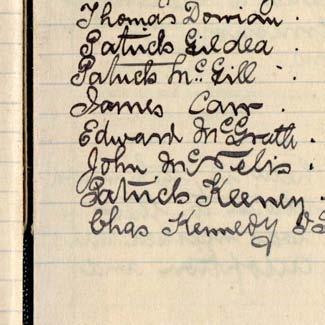 Thomas Dorrian .
Patrick Gildea .
Patrick McGill .
James Carr .
Edward McGrath .
John McNelis .
Patrick Keeney .
Chas Kennedy